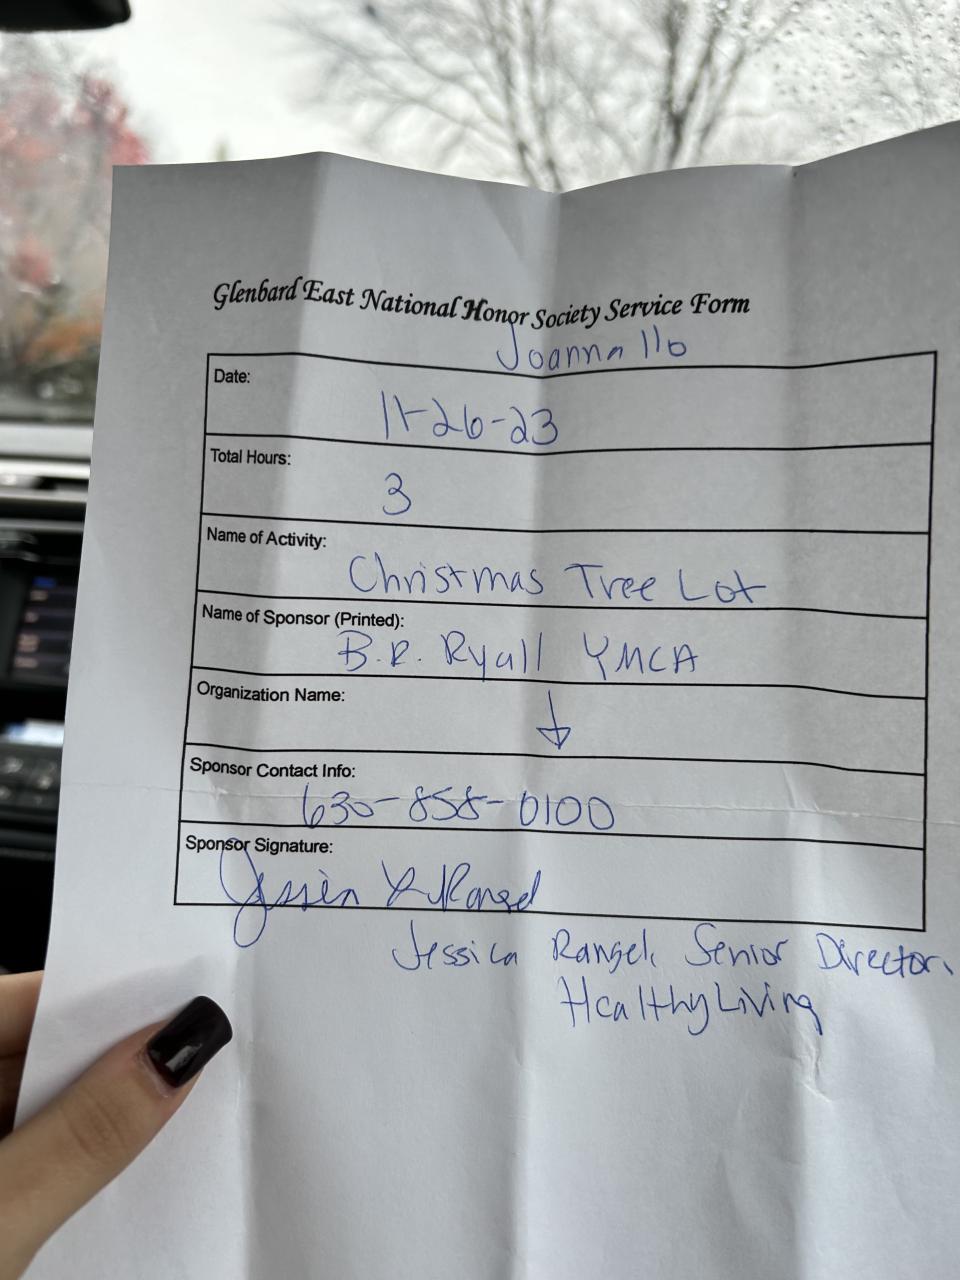 Glenbard East National Honor Society Service Form
Joanna Ilo
Date:
11-26-23
Total Hours:
3
Name of Activity:
Christmas Tree Lot
Name of Sponsor (Printed):
B.R. Ryall YMCA
Organization Name:
↓
Sponsor Contact Info:
630-858-0100
Sponsor Signature:
Jessica Y Rangel
Jessica Rangel, Senior Director,
Healthy Living